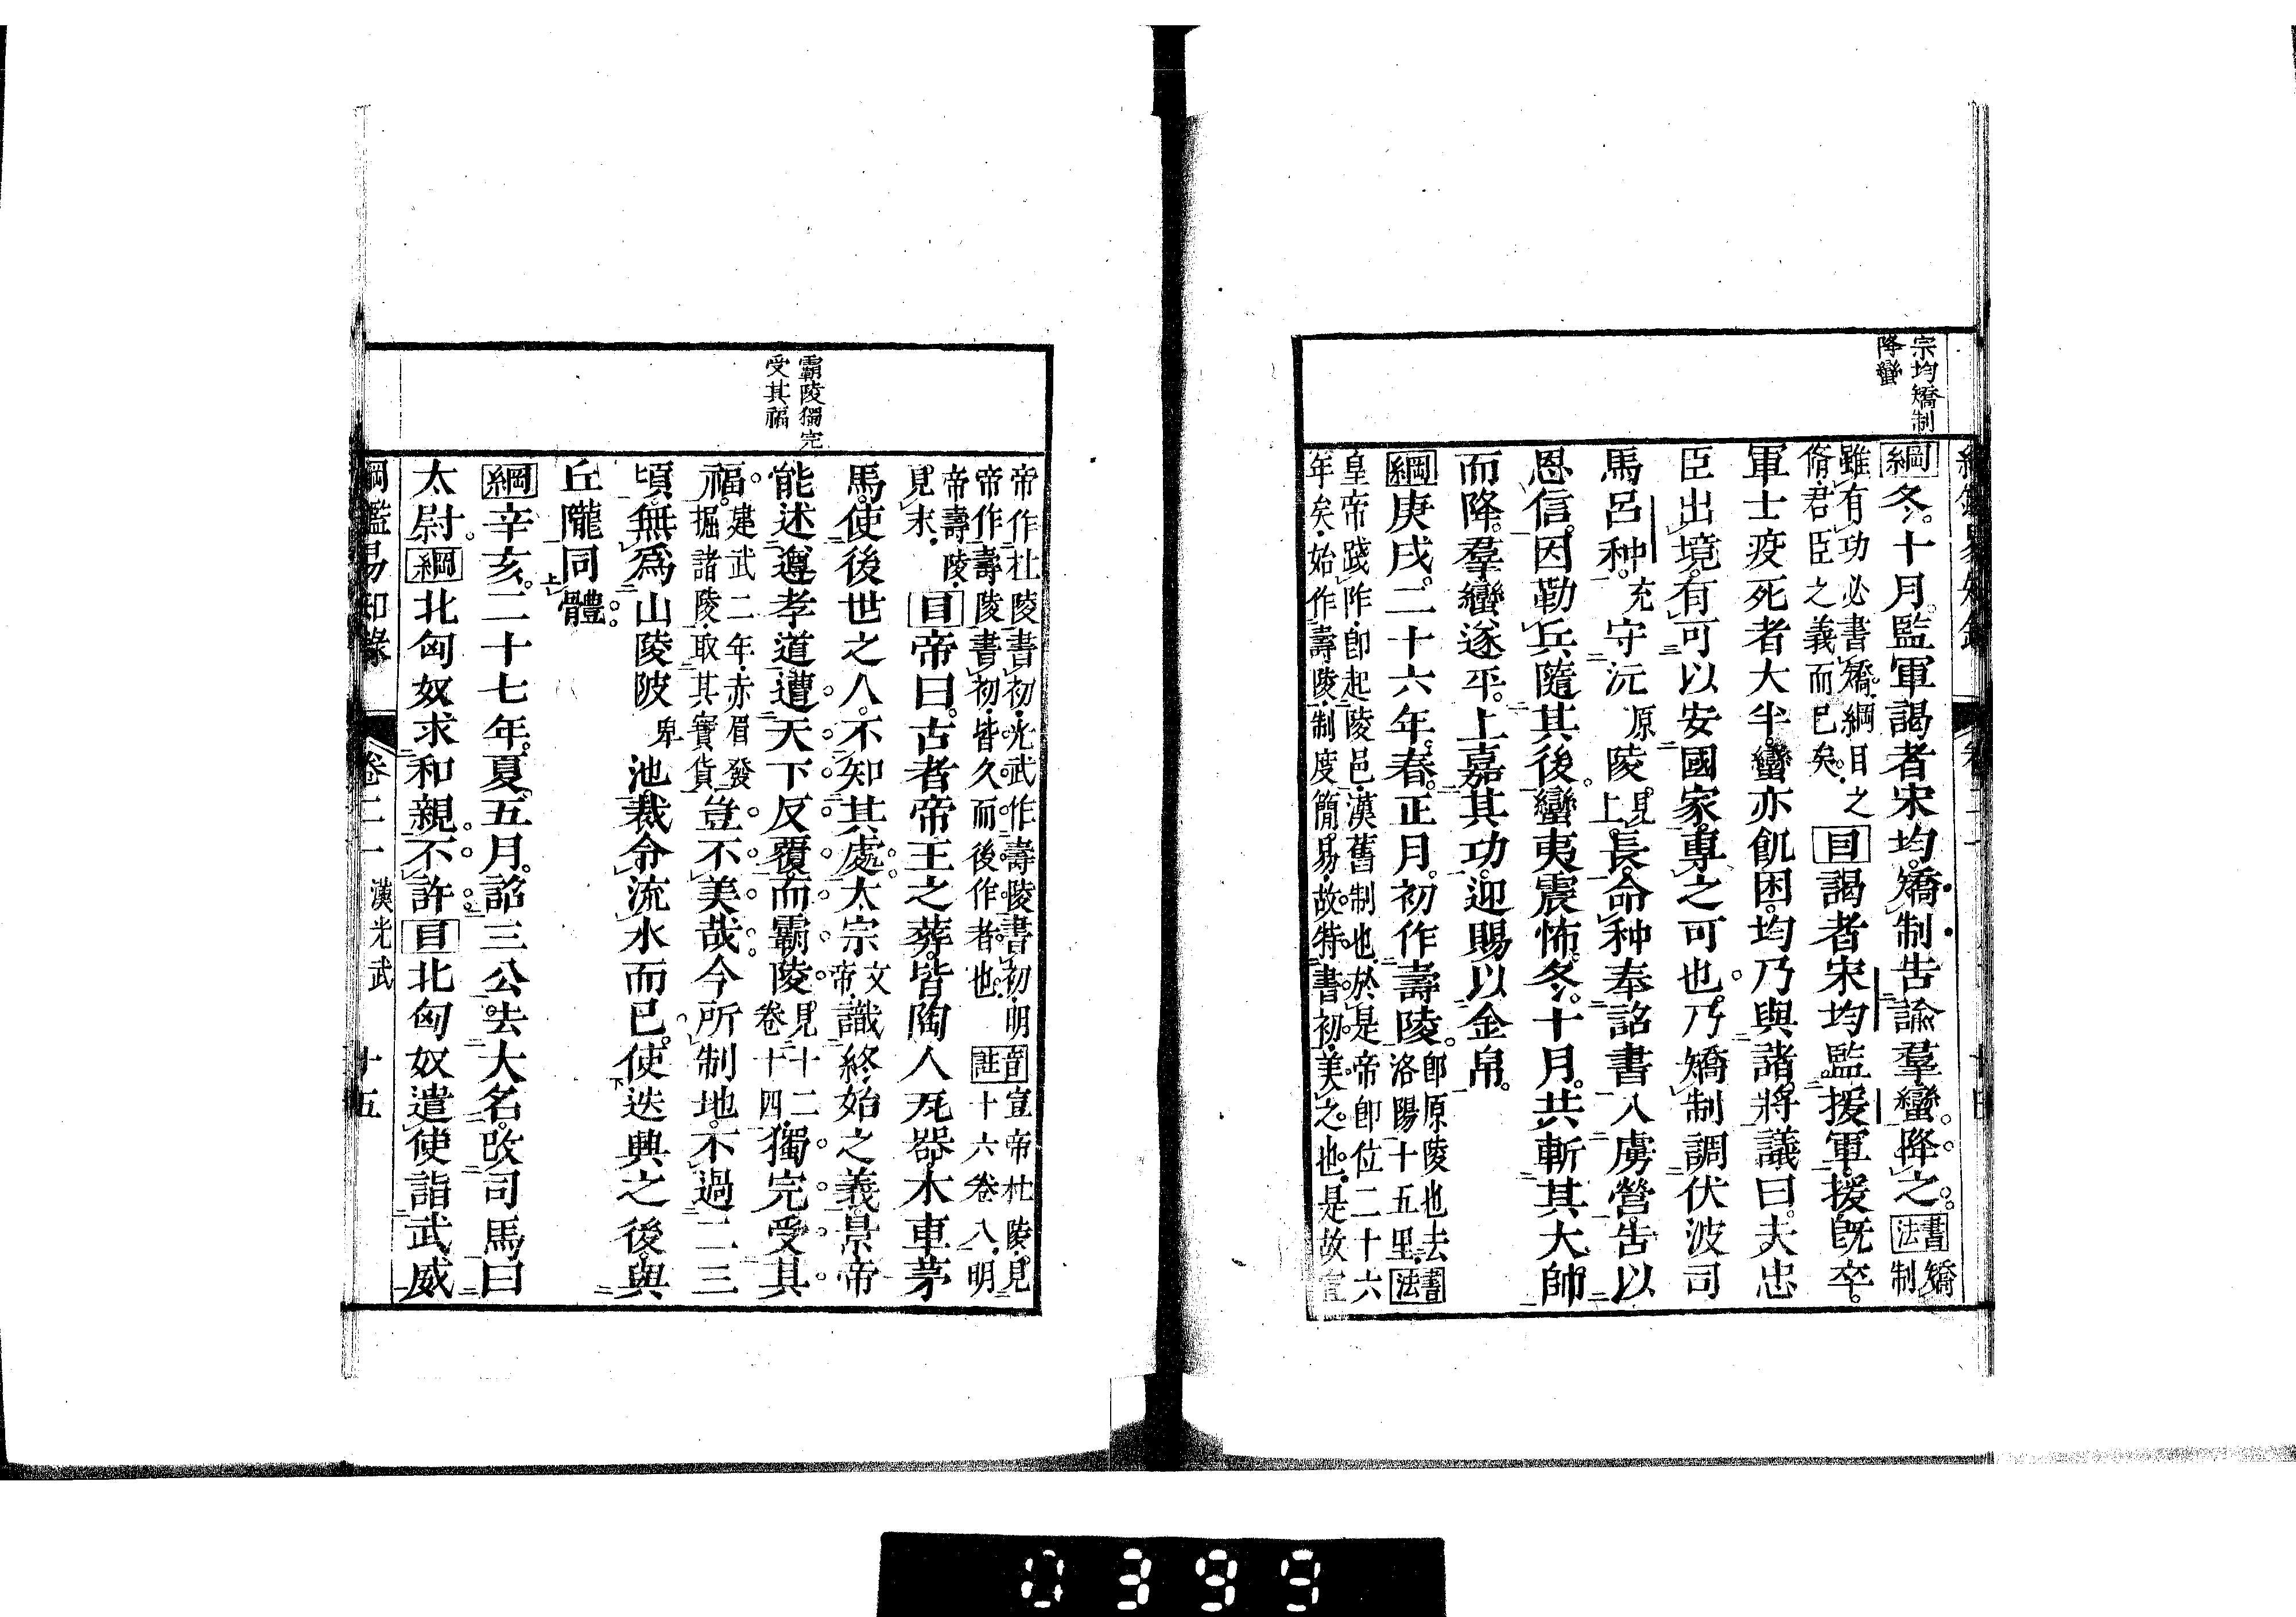 宗均矯制
降蠻
綱冬。十月。監軍謁者宋均。矯制告諭羣蠻。降之。書法矯制
雖有功必書矯。綱目之
脩君臣之義而已矣。目謁者宋均監援軍。援既卒。
軍士疫死者大半。蠻亦飢困。均乃與諸將議曰。夫忠
臣出境。有可以安國家。專之可也。乃矯制調伏波司
馬呂种。充守沅原陵。見上。長。命种奉詔書入虜營。告以
恩信。因勒兵隨其後。蠻夷震怖。冬。十月。共斬其大帥
而降。羣蠻遂平。上嘉其功。迎賜以金帛。
綱庚戌。二十六年。春。正月。初作壽陵。卽原陵也去洛陽十五里。書法
皇帝踐阼。卽起陵邑。漢舊制也。於是帝卽位二十六
年矣。始作壽陵。制度簡易。故特書初。美之也。是故宣
帝作杜陵書初。光武作壽陵書初。明
帝作壽陵書初。皆久而後作者也。附註宣帝杜陵。見十六卷八。明
帝壽陵。
見末。目帝曰。古者帝王之葬。皆陶人瓦器。木車茅
馬。使後世之人。不知其處。太宗文帝。識終始之義。景帝
能述遵孝道。遭天下反覆。而霸陵見十二卷十四。獨完受其
福。建武二年。赤眉發掘諸陵。取其寶貨。豈不美哉。今所制地。不過二三
頃。無爲山陵陂卑池。裁令流水而已。使迭興之後。與
丘隴同體。
霸陵獨完
受其福
綱辛亥。二十七年。夏。五月。詔三公。去大名。改司馬曰
太尉。綱北匈奴求和親。不許。目北匈奴遣使詣武威
綱鑑易知錄
卷二十一
漢光武
十五
0399